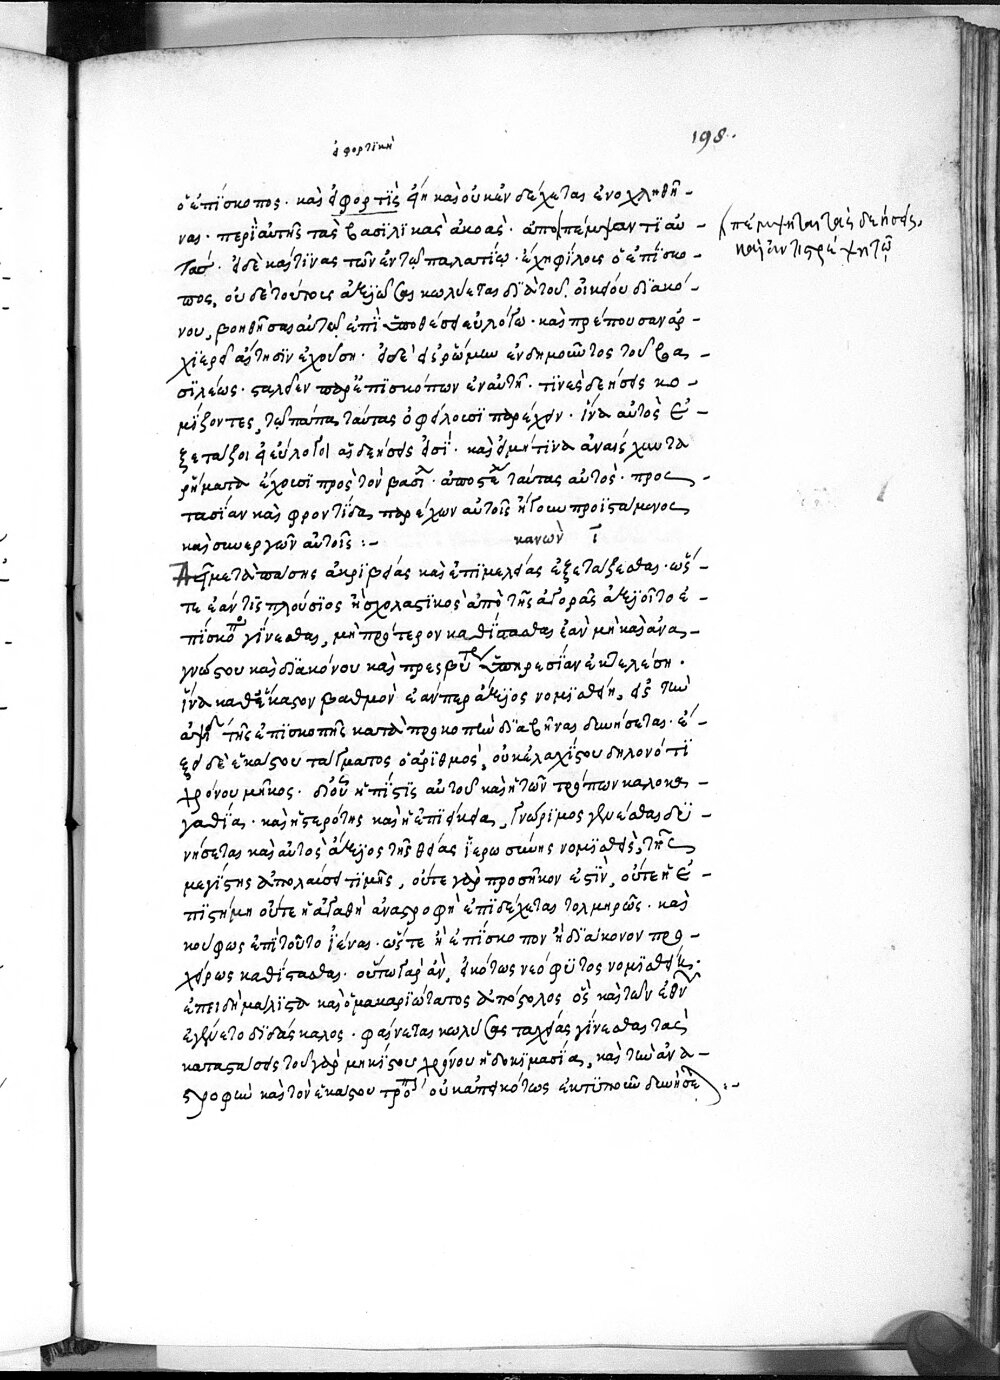 ἀφορτικὴ
198.
ὁ ἐπίσκοπος· καὶ ἀφορτὶς ᾖ καὶ οὐκ ἐνδέχεται ἐνοχληθῆ-
ναι· περὶ αὐτῆς τὰς βασιλικὰς ἀκοάς· ἀποπέμψαντι αὐ-
τάς· εἰ δὲ καί τινας τῶν ἐν τῷ παλατίῳ· ἔχῃ φίλους ὁ ἐπίσκο-
πος, οὐδὲ τούτοις ἀξιῶσαι κωλύεται διὰ τοῦ οἰκείου διακό-
νου, βοηθῆσαι αὐτῷ ἐπὶ ὑποθέσει εὐλόγῳ· καὶ πρέπουσαν ἀρ-
χιερεῖ αἴτησιν ἐχούσῃ· εἰ δὲ εἰς ῥώμην ἐνδημοῦντος τοῦ βα-
σιλέως· σταλεῖεν παρ' ἐπισκόπων ἐν αὐτῇ· τινὲς δεήσεις κο-
μίζοντες, τῷ πάπᾳ ταύτας ὀφείλουσι παρέχειν· ἵνα αὐτὸς ἐ-
ξετάζοι εἰ εὔλογοι αἱ δεήσεις εἰσί· καὶ εἰ μή τινα ἀναίσχυντα
ῥήματα ἔχουσι πρὸς τὸν βασι· ἀποστε ταύτας αὐτὸς· προσ
τασίαν καὶ φροντίδα παρέχων αὐτοῖς ἤγουν προϊστάμενος
καὶ συνεργῶν αὐτοῖς :-
κανὼν ι
Δεῖ μετὰ πάσης ἀκριβείας καὶ ἐπιμελείας ἐξετάζεσθαι· ὥσ-
τε ἐάν τις πλούσιος ἢ σχολαστικὸς ἀπὸ τῆς ἀγορᾶς ἀξιοῖτο ἐ-
πίσκοπος γίνεσθαι, μὴ πρότερον καθίστασθαι ἐὰν μὴ καὶ ἀνα-
γνώστου καὶ διακόνου καὶ πρεσβυτ ὑπηρεσίαν ἐκτελέσῃ·
ἵνα καθ' ἕκαστον βαθμὸν ἐάνπερ ἄξιος νομισθῇ, εἰς τὴν
ἁψῖ τῆς ἐπισκοπῆς κατὰ προκοπὴν διαβῆναι δυνήσεται· ἕ-
ξει δὲ ἑκάστου τάγματος ὁ ἀριθμὸς, οὐκ ἐλαχίστου δηλονότι
χρόνου μῆκος· δι' οὗ ἡ πίστις αὐτοῦ καὶ ἡ τῶν τρόπων καλοκα-
γαθία· καὶ ἡ στερρότης καὶ ἡ ἐπιείκεια, γνώριμος γενέσθαι δυ-
νήσεται καὶ αὐτὸς ἄξιος τῆς θείας ἱερωσύνης νομισθεὶς, τῆς
μεγίστης ἀπολαύσει τιμῆς, οὔτε γὰρ προσῆκον ἐστὶν, οὔτε ἡ ἐ-
πιστήμη οὔτε ἡ ἀγαθὴ ἀναστροφὴ ἐπιδέχεται τολμηρῶς· καὶ
κούφως ἐπὶ τοῦτο ἰέναι· ὥστε ἢ ἐπίσκοπον ἢ διάκονον προ-
χείρως καθίστασθαι· οὕτω γὰρ ἂν, εἰκότως νεόφυτος νομισθείη·
ἐπειδὴ μάλιστα καὶ ὁ μακαριώτατος ἀπόστολος ὃς καὶ τῶν ἐθν
ἐγένετο διδάσκαλος· φαίνεται κωλύσας ταχείας γίνεσθαι τὰς
καταστάσεις τοῦ γὰρ μηκίστου χρόνου ἡ δοκιμασία, καὶ τὴν ἀνα-
στροφὴν καὶ τὸν ἑκάστου τρόπ οὐκ ἀπεικότως ἐκτυποῦν δυνήσε :-
πέμψῃται τὰς δεήσεις,